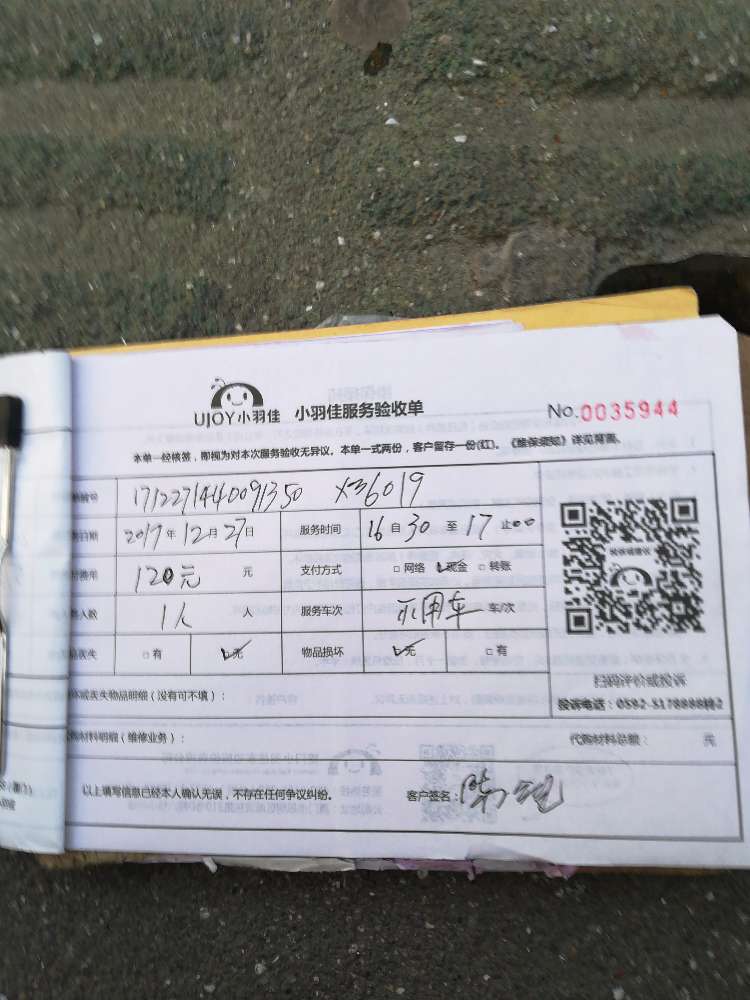 UJOY小羽佳 小羽佳服务验收单 No.0035944
本单一经核签，即视为对本次服务验收无异议。本单一式两份，客户留存一份(红)。《维保须知》详见背面。
1712271440091350 X36019
日期 2017年12月27日 服务时间 16自30至17止00
120元 元 支付方式 □网络 ☑现金 □转账
人数 1人 人 服务车次 不用车 车/次
丢失 □有 ☑无 物品损坏 ☑无 □有
扫码评价或投诉
或丢失物品明细（没有可不填）： 投诉电话：0592-3178888转2
材料明细（维修业务）： 代购材料总额： 元
以上填写信息已经本人确认无误，不存在任何争议纠纷。 客户签名：